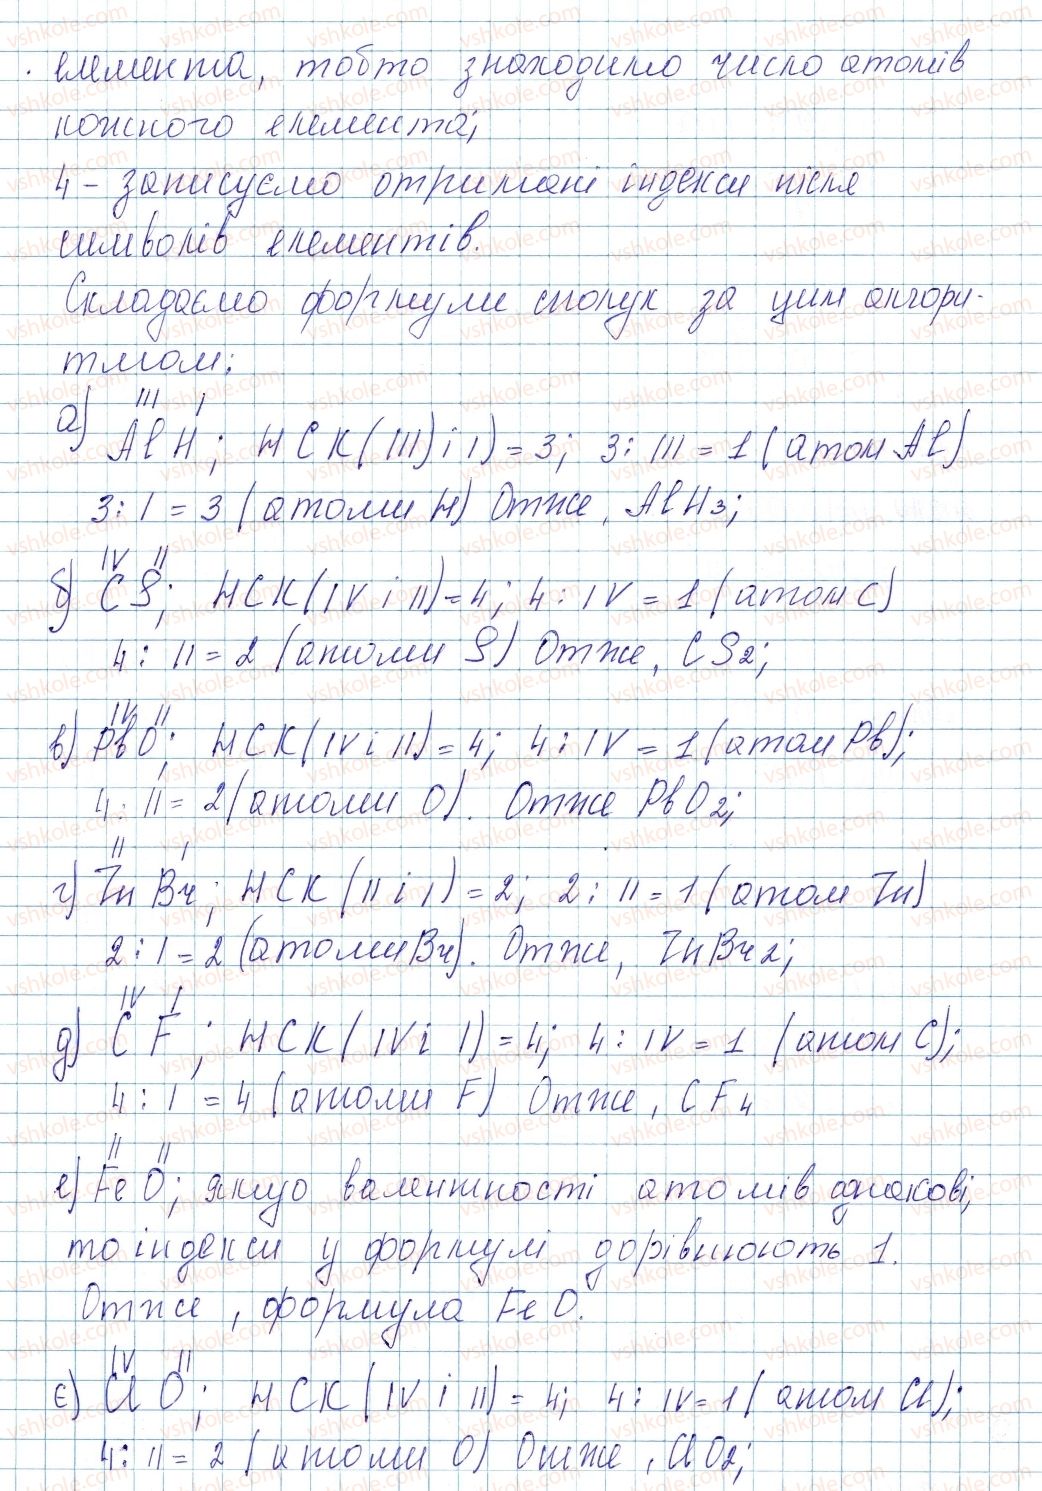 елемента, тобто знаходимо число атомів
кожного елемента;
4 - записуємо отримані індекси після
символів елементів.
Складаємо формули сполук за цим алгори-
тмом:
III I
а) AlH; НСК(III) і I) = 3; 3 : III = 1 (атом Al)
3 : I = 3 (атоми H) Отже, AlH3;
IV II
б) CS; НСК(IV і II) = 4; 4 : IV = 1 (атом C)
4 : II = 2 (атоми S) Отже, CS2;
IV II
в) PbO; НСК(IV і II) = 4; 4 : IV = 1 (атом Pb);
4 : II = 2 (атоми O). Отже PbO2;
II I
г) ZnBr; НСК(II і I) = 2; 2 : II = 1 (атом Zn)
2 : I = 2 (атоми Br). Отже, ZnBr2;
IV I
д) CF; НСК(IV і I) = 4; 4 : IV = 1 (атом C);
4 : I = 4 (атоми F) Отже, CF4
II II
е) FeO; якщо валентності атомів однакові,
то індекси у формулі дорівнюють 1.
Отже, формула FeO.
IV II
є) ClO; НСК(IV і II) = 4; 4 : IV = 1 (атом Cl);
4 : II = 2 (атоми O) Отже, ClO2;
vshkole.com